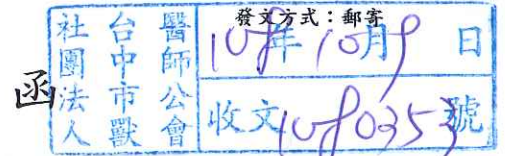 發文方式：郵寄
函
社團法人
台中市獸
醫師公會
108年10月9日
收文1080353號